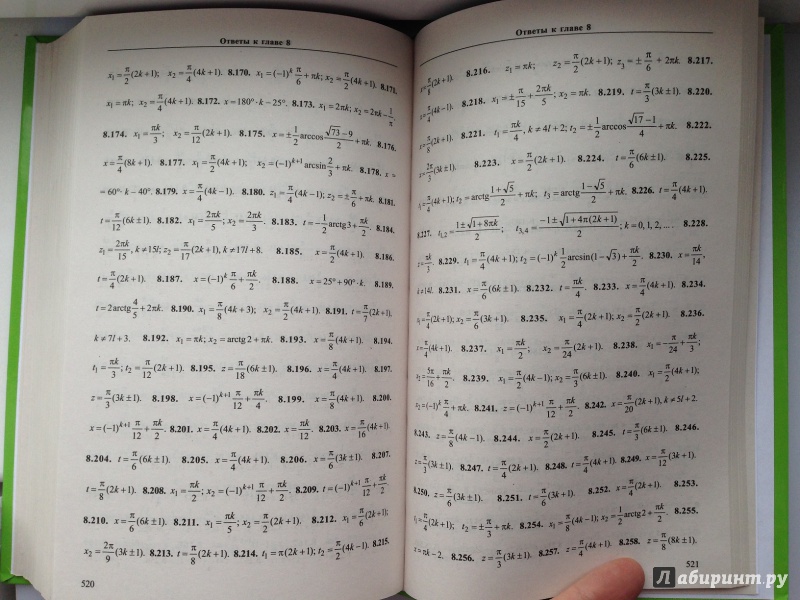 Ответы к главе 8
x₁ = π/2(2k+1); x₂ = π/4(4k+1). 8.170. x₁ = (−1)ᵏ π/6 + πk; x₂ = π/2(4k+1). 8.171.
x₁ = πk; x₂ = π/4(4k+1). 8.172. x = 180°·k − 25°. 8.173. x₁ = 2πk; x₂ = 2πk −
8.174. x₁ = πk/3; x₂ = π/12(2k+1). 8.175. x = ±1/2 arccos (√73−9)/2 + πk. 8.176.
x = π/4(8k+1). 8.177. x₁ = π/4(2k+1); x₂ = (−1)ᵏ⁺¹ arcsin 2/3 + πk. 8.178. x =
= 60°·k − 40°. 8.179. x = π/4(4k−1). 8.180. z₁ = π/4(4k−1); z₂ = ±π/6 + πk. 8.181.
t = π/12(6k±1). 8.182. x₁ = 2πk/5; x₂ = 2πk/3. 8.183. t = −1/2 arctg3 + πk/2. 8.184.
z₁ = 2πk/15, k ≠ 15l; z₂ = π/17(2k+1), k ≠ 17l+8. 8.185. x = π/2(4k+1). 8.186.
t = π/4(2k+1). 8.187. x = (−1)ᵏ π/6 + πk/2. 8.188. x = 25° + 90°·k. 8.189.
t = 2arctg 4/5 + 2πk. 8.190. x₁ = π/8(4k+3); x₂ = π/2(4k+1). 8.191. t = π/7(2k+1),
k ≠ 7l+3. 8.192. x₁ = πk; x₂ = arctg2 + πk. 8.193. x = π/8(4k+1). 8.194.
t₁ = πk/3; t₂ = π/12(2k+1). 8.195. z = π/18(6k±1). 8.196. x = π/4(4k+1). 8.197.
z = π/3(3k±1). 8.198. x = (−1)ᵏ⁺¹ π/12 + πk/4. 8.199. x = π/8(4k+1). 8.200.
x = (−1)ᵏ⁺¹ π/12 + πk/2. 8.201. x = π/4(4k+1). 8.202. x = πk/12. 8.203. x = π/16(4k+1).
8.204. t = π/6(6k±1). 8.205. x = π/4(4k+1). 8.206. x = π/6(3k±1). 8.207.
t = π/8(2k+1). 8.208. x₁ = πk/2; x₂ = (−1)ᵏ⁺¹ π/12 + πk/2. 8.209. t = (−1)ᵏ⁺¹ π/12 + πk/2.
8.210. x = π/6(6k±1). 8.211. x₁ = πk/5; x₂ = π/2(2k+1). 8.212. x₁ = π/6(2k+1);
x₂ = 2π/9(3k±1). 8.213. t = π/8(2k+1). 8.214. t₁ = π(2k+1); t₂ = π/2(4k−1). 8.215.
520
Ответы к главе 8
x = π/8(2k+1). 8.216. z₁ = πk; z₂ = π/2(2k+1); z₃ = ±π/6 + 2πk. 8.217.
x = π/4(4k+1). 8.218. x₁ = ±π/15 + 2πk/5; x₂ = πk. 8.219. t = π/3(3k±1). 8.220.
x = π/8(2k+1). 8.221. t₁ = πk/4, k ≠ 4l+2; t₂ = ±1/2 arccos (√17−1)/4 + πk. 8.222.
x = 2π/3(3k±1). 8.223. x = π/2(2k+1). 8.224. t = π/6(6k±1). 8.225.
t₁ = π/4(4k+1); t₂ = arctg (1+√5)/2 + πk; t₃ = arctg (1−√5)/2 + πk. 8.226. t = π/4(4k+1).
8.227. t₁,₂ = (1±√(1+8πk))/2; t₃,₄ = (−1±√(1+4π(2k+1)))/2; k = 0, 1, 2, ... . 8.228.
z = πk/3. 8.229. t₁ = π/4(4k+1); t₂ = (−1)ᵏ 1/2 arcsin(1−√3) + πk/2. 8.230. x = πk/14,
k ≠ 14l. 8.231. x = π/6(6k±1). 8.232. t = πk/4. 8.233. x = π/4(4k+1). 8.234.
x₁ = π/4(2k+1); x₂ = π/6(3k±1). 8.235. x₁ = π/4(2k+1); x₂ = π/6(6k±1). 8.236.
x = π/4(4k+1). 8.237. x₁ = πk/2; x₂ = π/24(2k+1). 8.238. x₁ = −π/24 + πk/3;
x₂ = 5π/16 + πk/2. 8.239. x₁ = π/4(4k−1); x₂ = π/3(6k±1). 8.240. x₁ = π/4(2k+1);
x₂ = (−1)ᵏ π/4 + πk. 8.241. z = (−1)ᵏ⁺¹ π/12 + πk/2. 8.242. x = π/20(2k+1), k ≠ 5l+2.
8.243. z = π/8(4k−1). 8.244. x = π/2(2k+1). 8.245. t = π/3(6k±1). 8.246.
z = π/3(3k±1). 8.247. t = π/4(2k+1). 8.248. t = π/4(4k+1). 8.249. x = π/12(3k+1).
8.250. z = π/6(3k±1). 8.251. t = π/6(3k+1). 8.252. x = π/4(2k+1). 8.253.
t₁ = π/4(2k+1); t₂ = ±π/3 + πk. 8.254. x₁ = π/8(4k−1); x₂ = 1/2 arctg2 + πk/2. 8.255.
x = πk − 2. 8.256. z = π/3(3k±1). 8.257. z = π/4(4k+1). 8.258. z = π/8(8k±1).
521
Лабиринт.ру